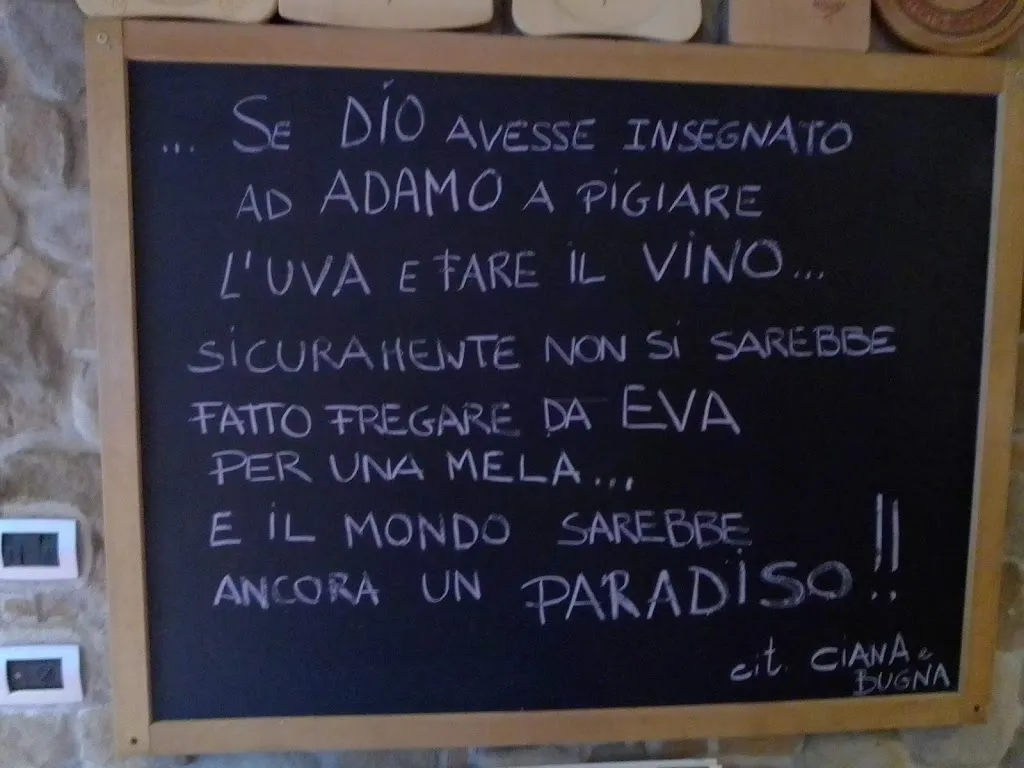 ... Se DIO AVESSE INSEGNATO
AD ADAMO A PIGIARE
L'UVA E FARE IL VINO...
SICURAMENTE NON SI SAREBBE
FATTO FREGARE DA EVA
PER UNA MELA...
E IL MONDO SAREBBE
ANCORA UN PARADISO!!
cit. CIANA e
BUGNA